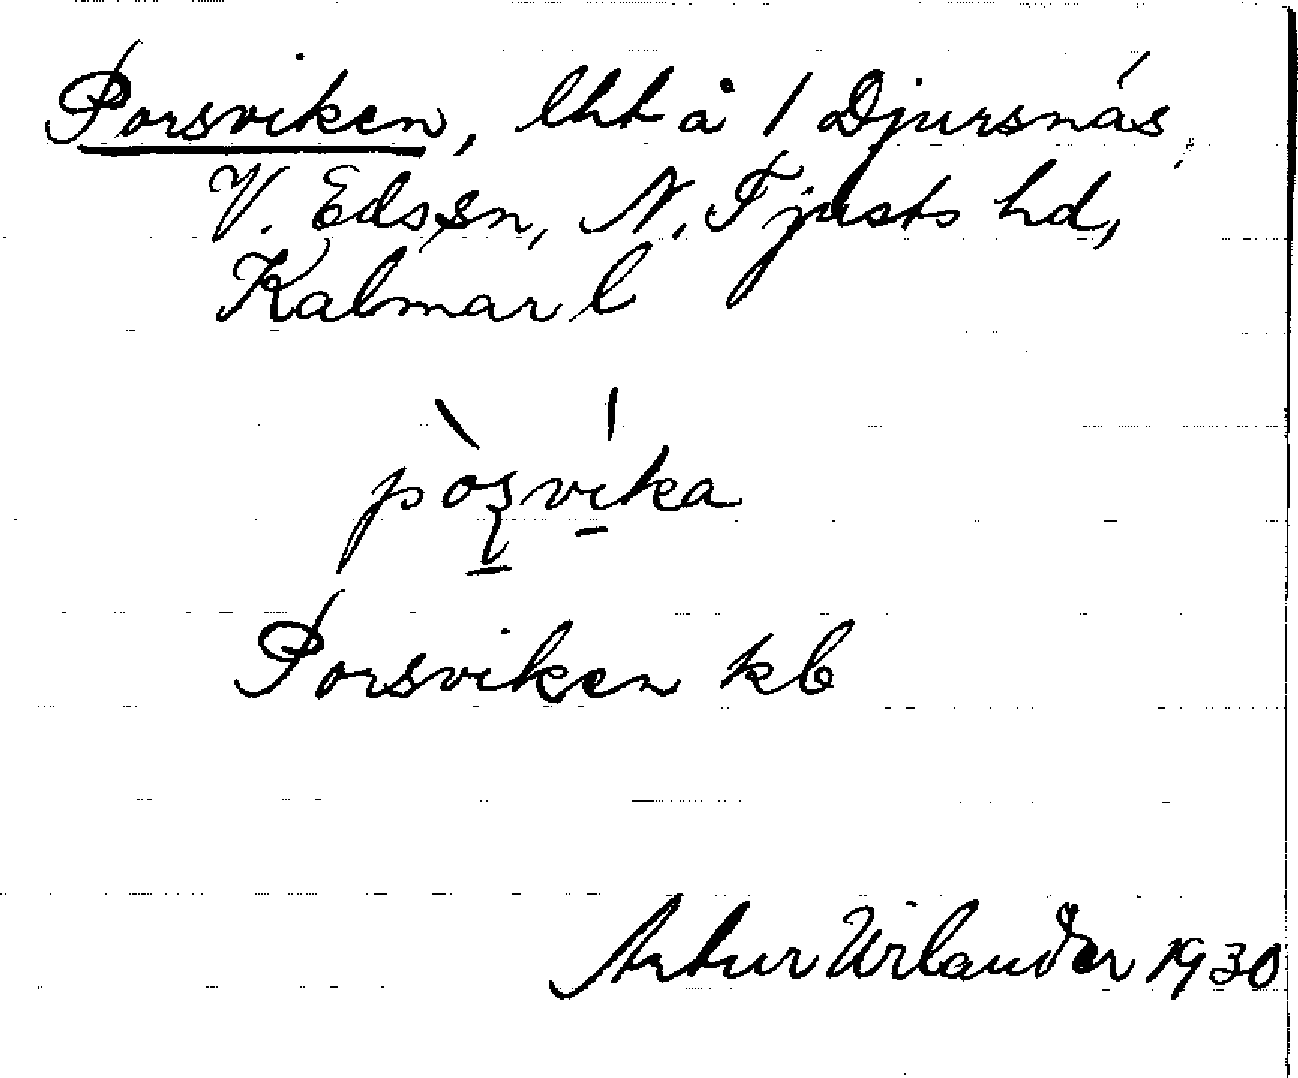 Porsviken, lht å 1 Djursnäs,
V. Eds sn, N. Tjusts hd,
Kalmar l
pòʂvíka
Porsviken kb
Artur Wilander 1930